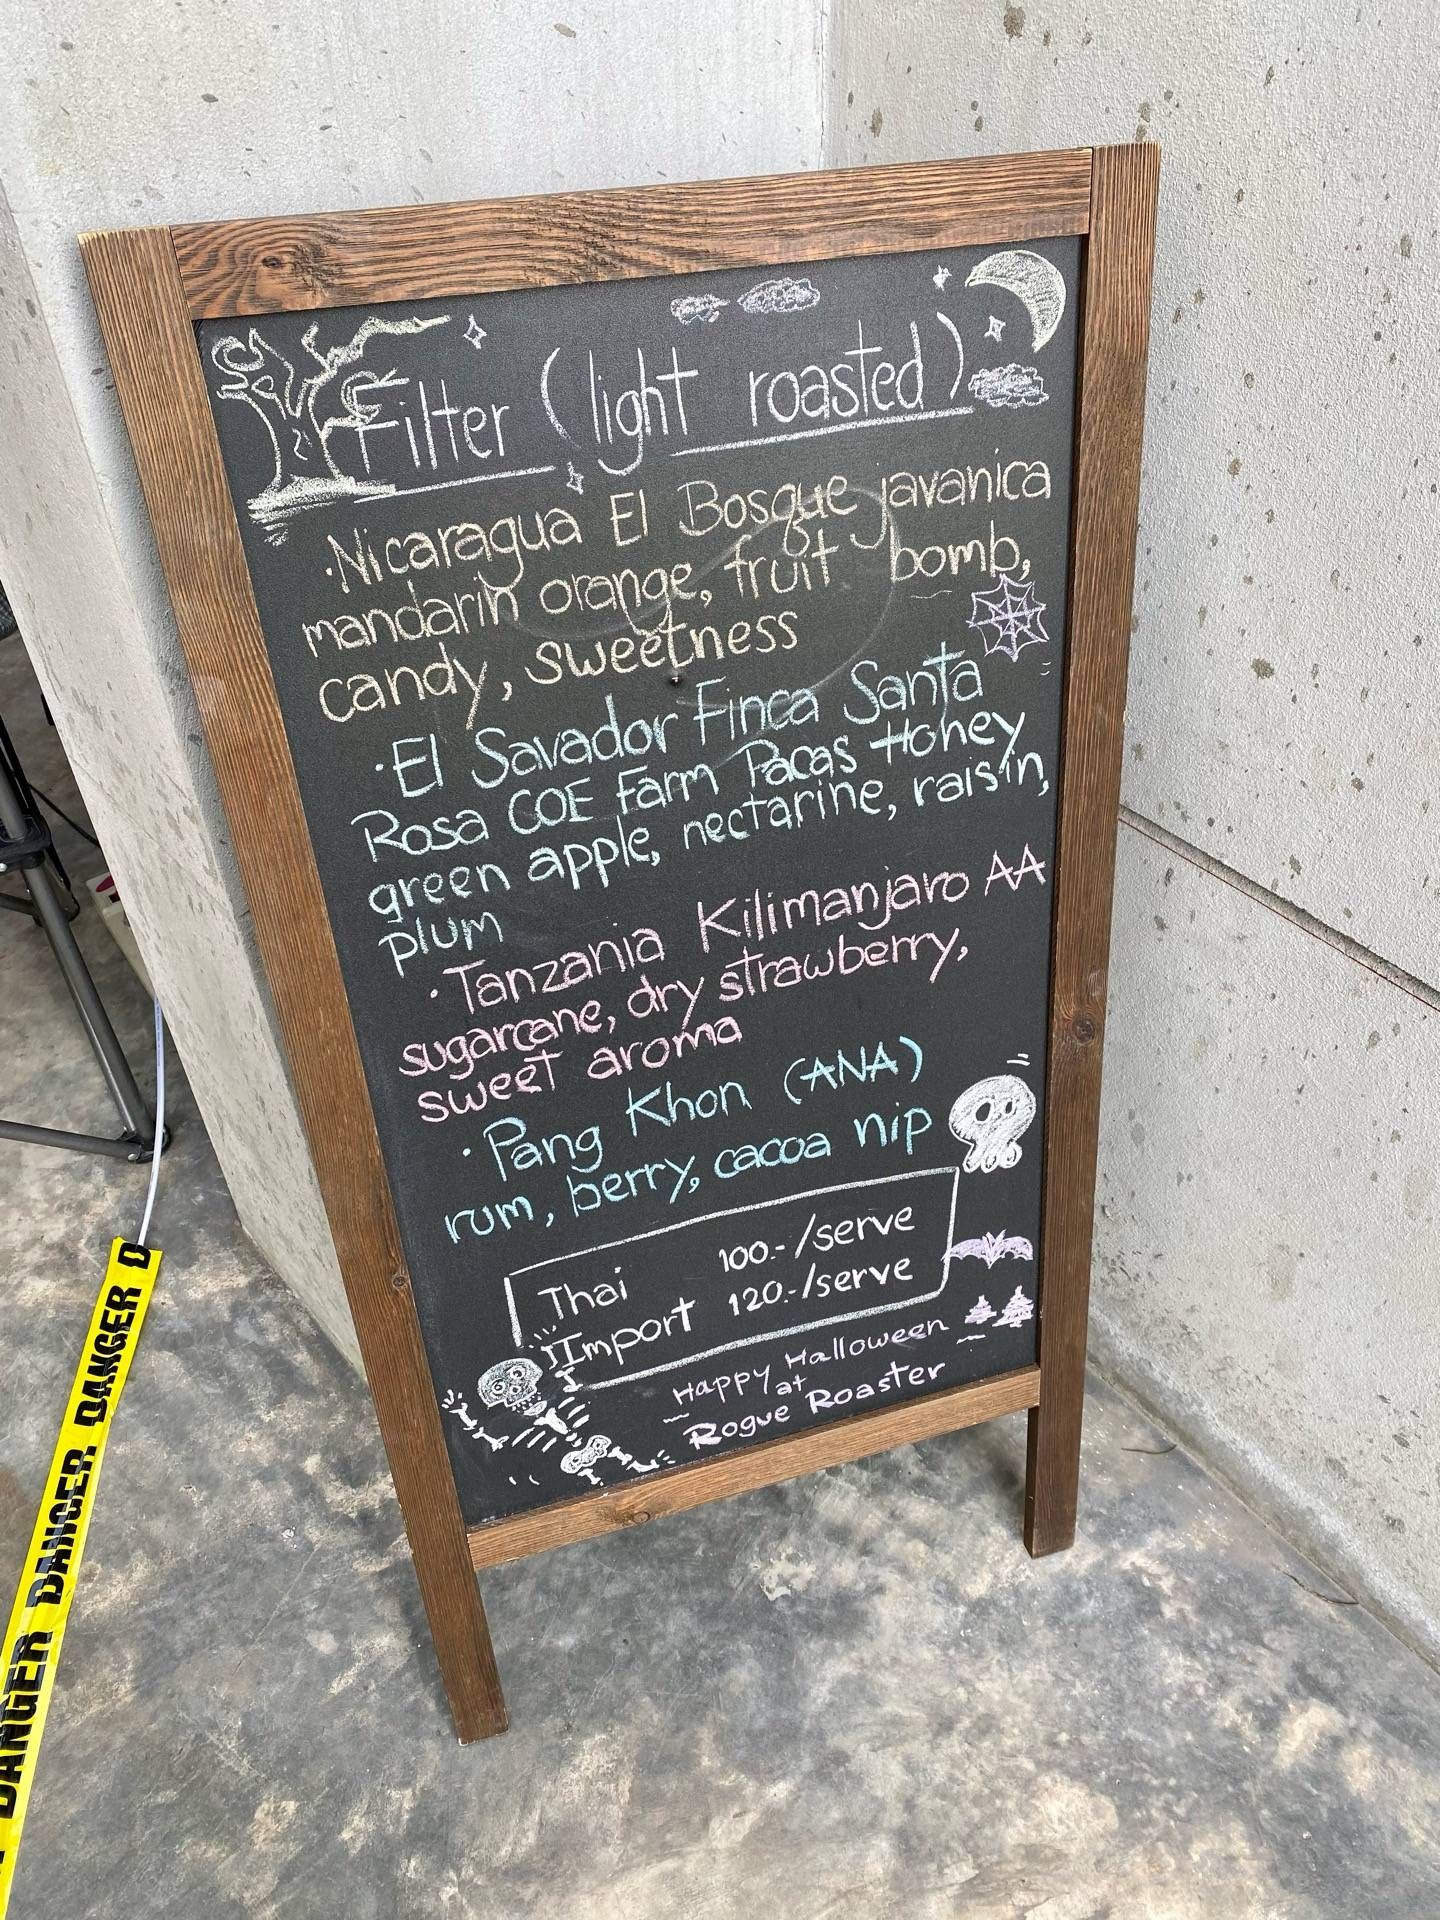 Filter (light roasted)
·Nicaragua El Bosque javanica
mandarin orange, fruit bomb,
candy, sweetness
·El Savador Finca Santa
Rosa COE Farm Pacas Honey
green apple, nectarine, raisin,
plum
·Tanzania Kilimanjaro AA
sugarcane, dry strawberry,
sweet aroma
·Pang Khon (ANA)
rum, berry, cacoa nip
Thai 100.-/serve
Import 120.-/serve
Happy Halloween
at
Rogue Roaster
DANGER DANGER DANGER DANGER D